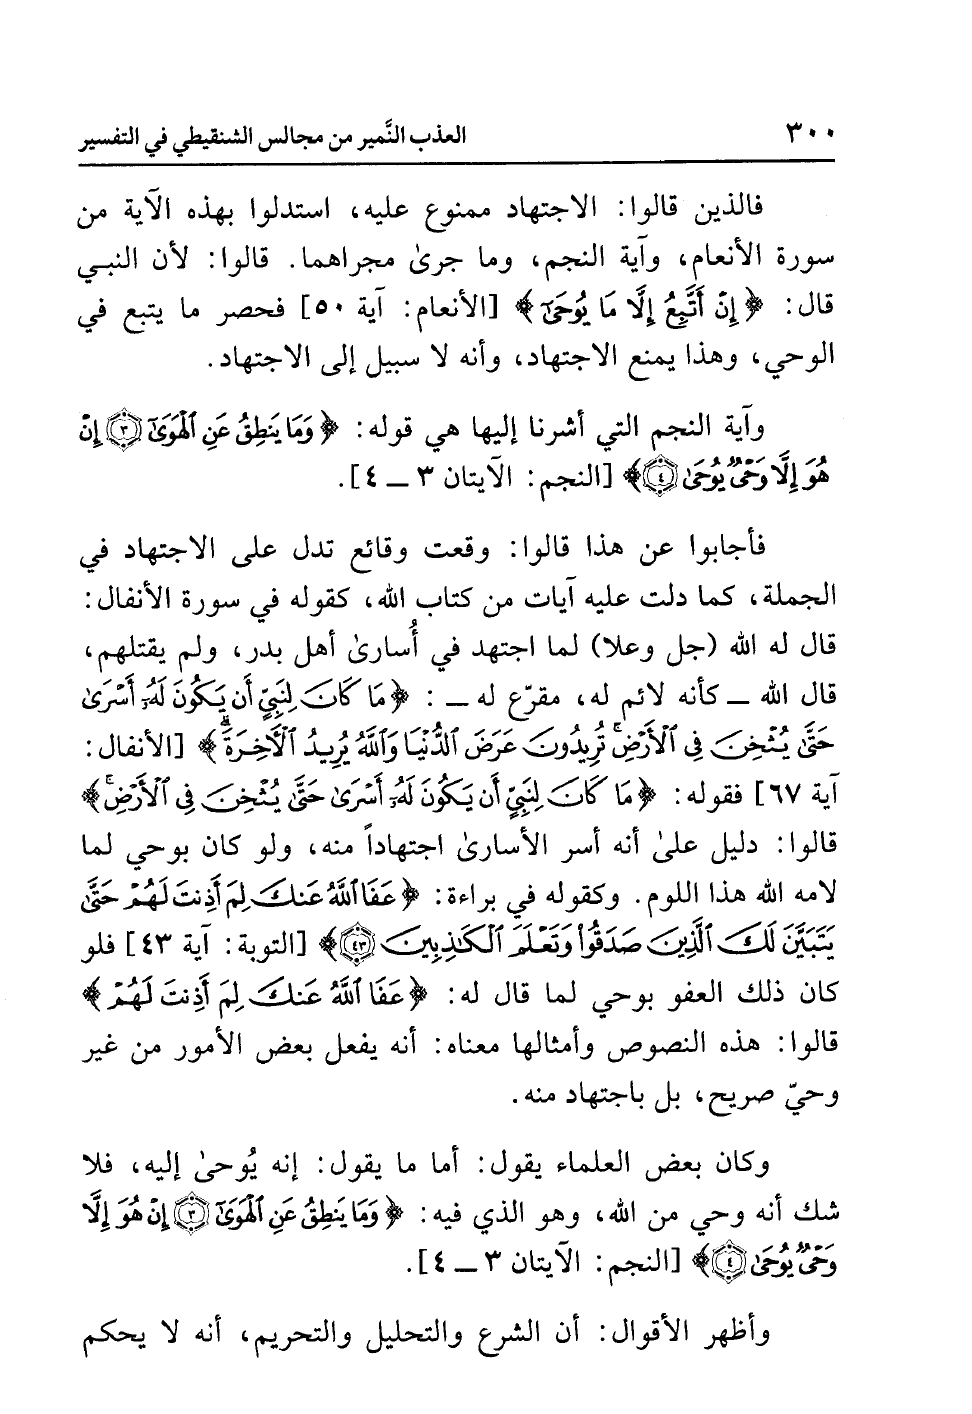 ٣٠٠ العذب النَّمير من مجالس الشنقيطي في التفسير
فالذين قالوا: الاجتهاد ممنوع عليه، استدلوا بهذه الآية من
سورة الأنعام، وآية النجم، وما جرىٰ مجراهما. قالوا: لأن النبي
قال: ﴿إِنْ أَتَّبِعُ إِلَّا مَا يُوحَىٰٓ﴾ [الأنعام: آية ٥٠] فحصر ما يتبع في
الوحي، وهذا يمنع الاجتهاد، وأنه لا سبيل إلى الاجتهاد.
وآية النجم التي أشرنا إليها هي قوله: ﴿وَمَا يَنطِقُ عَنِ ٱلْهَوَىٰٓ ٣ إِنْ
هُوَ إِلَّا وَحْىٌ يُوحَىٰ ٤﴾ [النجم: الآيتان ٣ ــ ٤].
فأجابوا عن هذا قالوا: وقعت وقائع تدل على الاجتهاد في
الجملة، كما دلت عليه آيات من كتاب الله، كقوله في سورة الأنفال:
قال له الله (جل وعلا) لما اجتهد في أُسارىٰ أهل بدر، ولم يقتلهم،
قال الله ــ كأنه لائم له، مقرّع له ــ : ﴿مَا كَانَ لِنَبِيٍّ أَن يَكُونَ لَهُۥٓ أَسْرَىٰ
حَتَّىٰ يُثْخِنَ فِى ٱلْأَرْضِ ۚ تُرِيدُونَ عَرَضَ ٱلدُّنْيَا وَٱللَّهُ يُرِيدُ ٱلْآخِرَةَ ۗ﴾ [الأنفال:
آية ٦٧] فقوله: ﴿مَا كَانَ لِنَبِيٍّ أَن يَكُونَ لَهُۥٓ أَسْرَىٰ حَتَّىٰ يُثْخِنَ فِى ٱلْأَرْضِ ۚ﴾
قالوا: دليل علىٰ أنه أسر الأسارىٰ اجتهاداً منه، ولو كان بوحي لما
لامه الله هذا اللوم. وكقوله في براءة: ﴿عَفَا ٱللَّهُ عَنكَ لِمَ أَذِنتَ لَهُمْ حَتَّىٰ
يَتَبَيَّنَ لَكَ ٱلَّذِينَ صَدَقُوا۟ وَتَعْلَمَ ٱلْكَٰذِبِينَ ٤٣﴾ [التوبة: آية ٤٣] فلو
كان ذلك العفو بوحي لما قال له: ﴿عَفَا ٱللَّهُ عَنكَ لِمَ أَذِنتَ لَهُمْ﴾
قالوا: هذه النصوص وأمثالها معناه: أنه يفعل بعض الأمور من غير
وحيّ صريح، بل باجتهاد منه.
وكان بعض العلماء يقول: أما ما يقول: إنه يُوحىٰ إليه، فلا
شك أنه وحي من الله، وهو الذي فيه: ﴿وَمَا يَنطِقُ عَنِ ٱلْهَوَىٰٓ ٣ إِنْ هُوَ إِلَّا
وَحْىٌ يُوحَىٰ ٤﴾ [النجم: الآيتان ٣ ــ ٤].
وأظهر الأقوال: أن الشرع والتحليل والتحريم، أنه لا يحكم